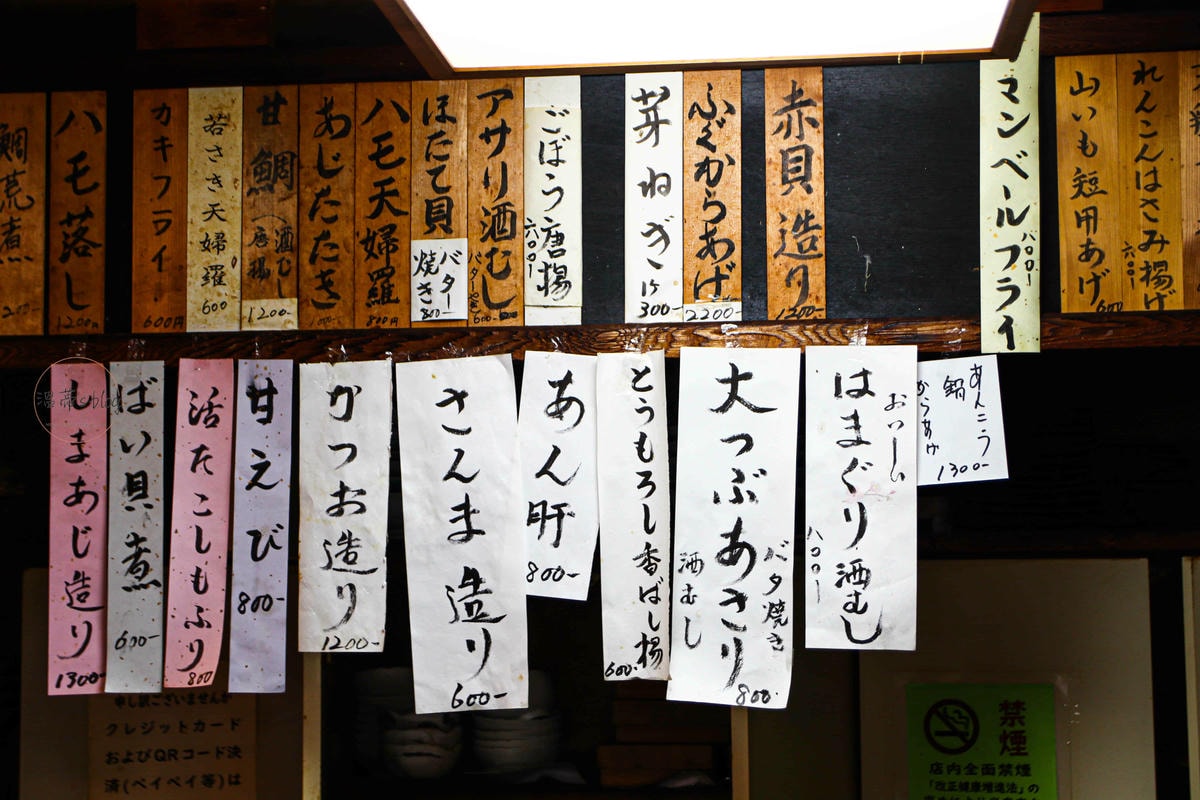 れんこんはさみ揚げ
六〇〇ー
山いも短用あげ
600
マンベールフライ
八〇〇ー
赤貝造り
1200-
ふぐからあげ
2200-
芽ねぎ
1ケ
300-
ごぼう唐揚
六〇〇ー
アサリ酒むし
バターやき
600-
ほたて貝
バター
焼き
800-
ハモ天婦羅
800円
あじたたき
甘鯛(酒むし
唐揚
1200-
若さき天婦羅
600
カキフライ
600円
ハモ落し
1200円
鯛荒煮
あんこう
鍋
からあげ
1300-
おいしい
はまぐり酒むし
八〇〇ー
バタ焼き
大つぶあさり
酒むし
800-
とうもろし香ばし揚
600-
あん肝
800-
さんま造り
600-
かつお造り
1200-
甘えび
800-
活たこしもふり
800
ばい貝煮
600-
しまあじ造り
1300-
申し訳ございませんが
クレジットカード
およびQRコード決
済(ペイペイ等)は
禁煙
店内全面禁煙
「改正健康増進法」の